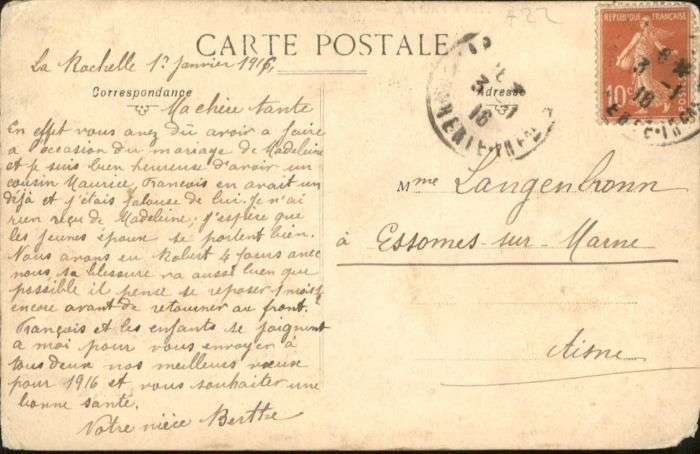 422
CARTE POSTALE
La Rochelle 1r Janvier 1916,
Correspondance
Adresse
RÉPUBLIQUE FRANÇAISE
10
Ma chère tante
En effet vous avez dû avoir a faire
a occasion du mariage de Madeleine
et je suis bien heureuse d'avoir un
cousin Maurice, François en avait un
déjà et j'étais jalouse de lui. Je n'ai
rien reçu de Madeleine, j'espère que
les jeunes époux se portent bien.
Nous avons eu Robert 4 jours avec
nous, sa blessure va aussi bien que
possible il pense se reposer 1 mois
encore avant de retourner au front.
François et les enfants se joignent
a moi pour vous envoyer à
tous deux nos meilleurs vœux
pour 1916 et vous souhaiter une
bonne santé.
Votre nièce Berthe
Mme Langenbronn
à Essomes-sur-Marne
Aisne